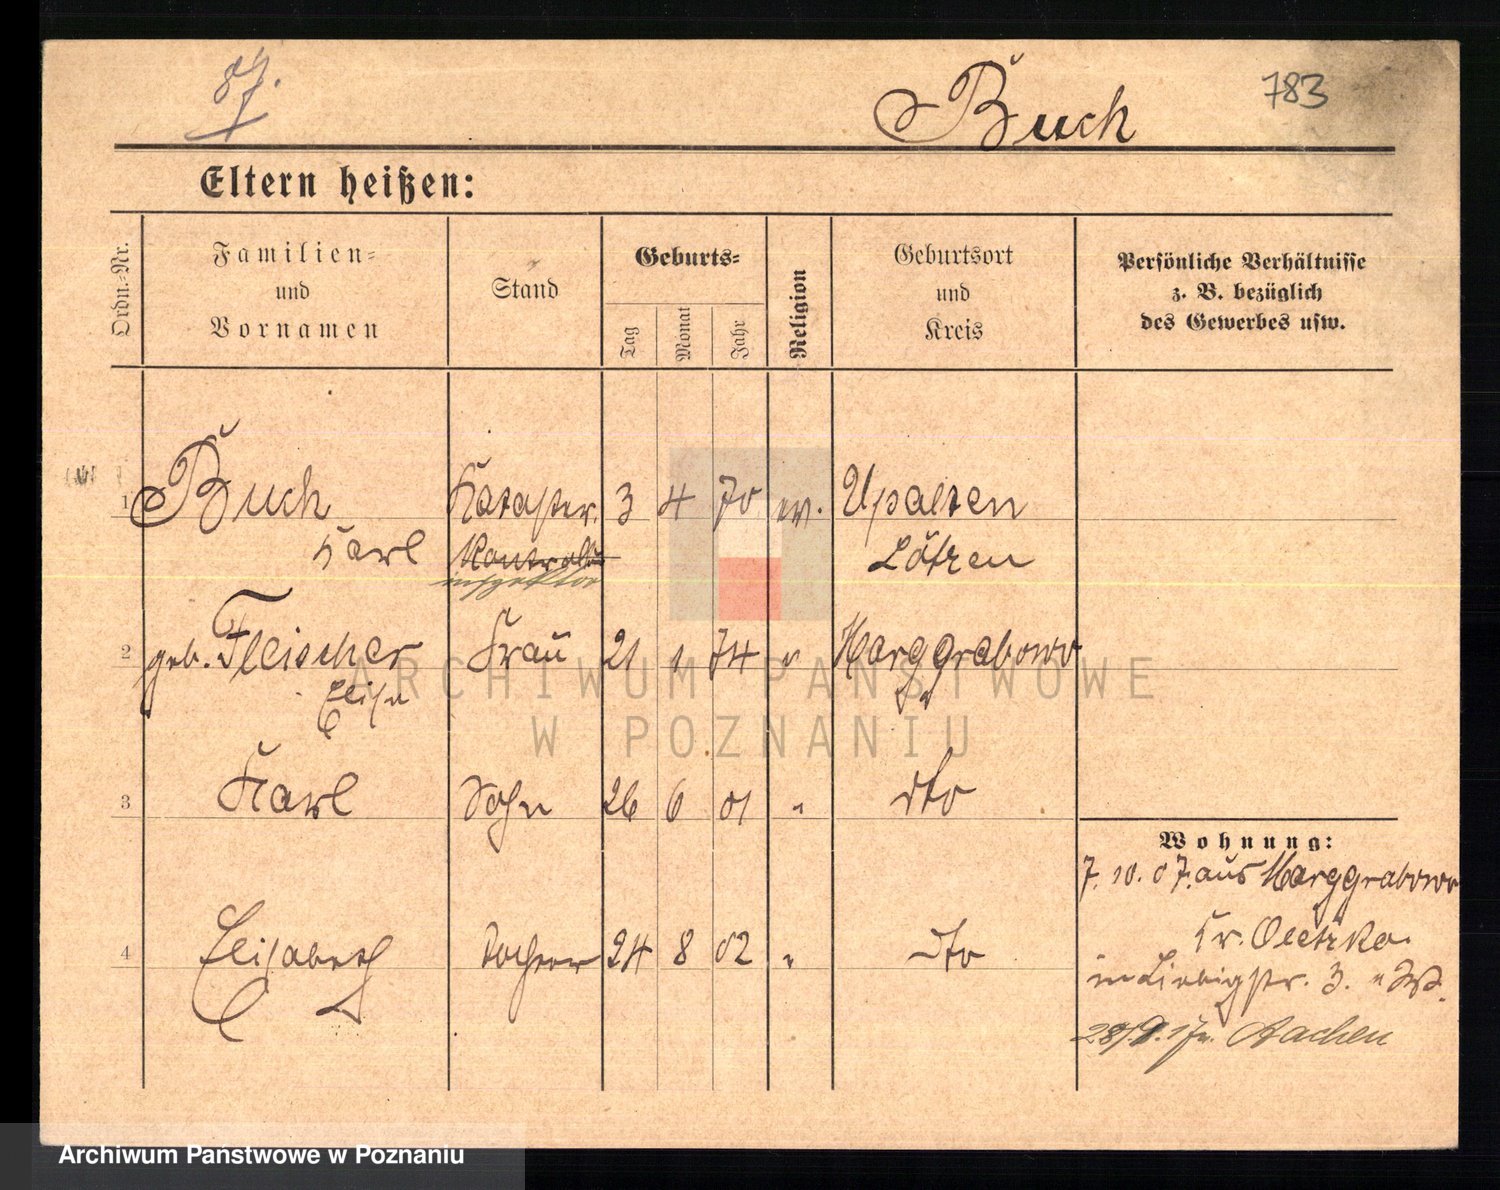 87.
Buch
783
Eltern heißen:
Ordn.-Nr.
Familien-
und
Vornamen
Stand
Geburts-
Tag
Monat
Jahr
Religion
Geburtsort
und
Kreis
Persönliche Verhältnisse
z. B. bezüglich
des Gewerbes usw.
1 Buch Kataster. 3 4 70 ev. Upalten
Karl Kontrolleur Lötzen
inspektor
2 geb. Fleischer Frau 21 1 74 " Marggrabowo
Elise
3 Karl Sohn 26 6 01 " dto
Wohnung:
7. 10. 07. aus Marggrabowo
4 Elisabeth Tochter 24 8 02 " dto
Kr. Oletzko.
in Liebigstr. 3.
28/9.17 n. Aachen
ARCHIWUM PAŃSTWOWE
W POZNANIU
Archiwum Państwowe w Poznaniu